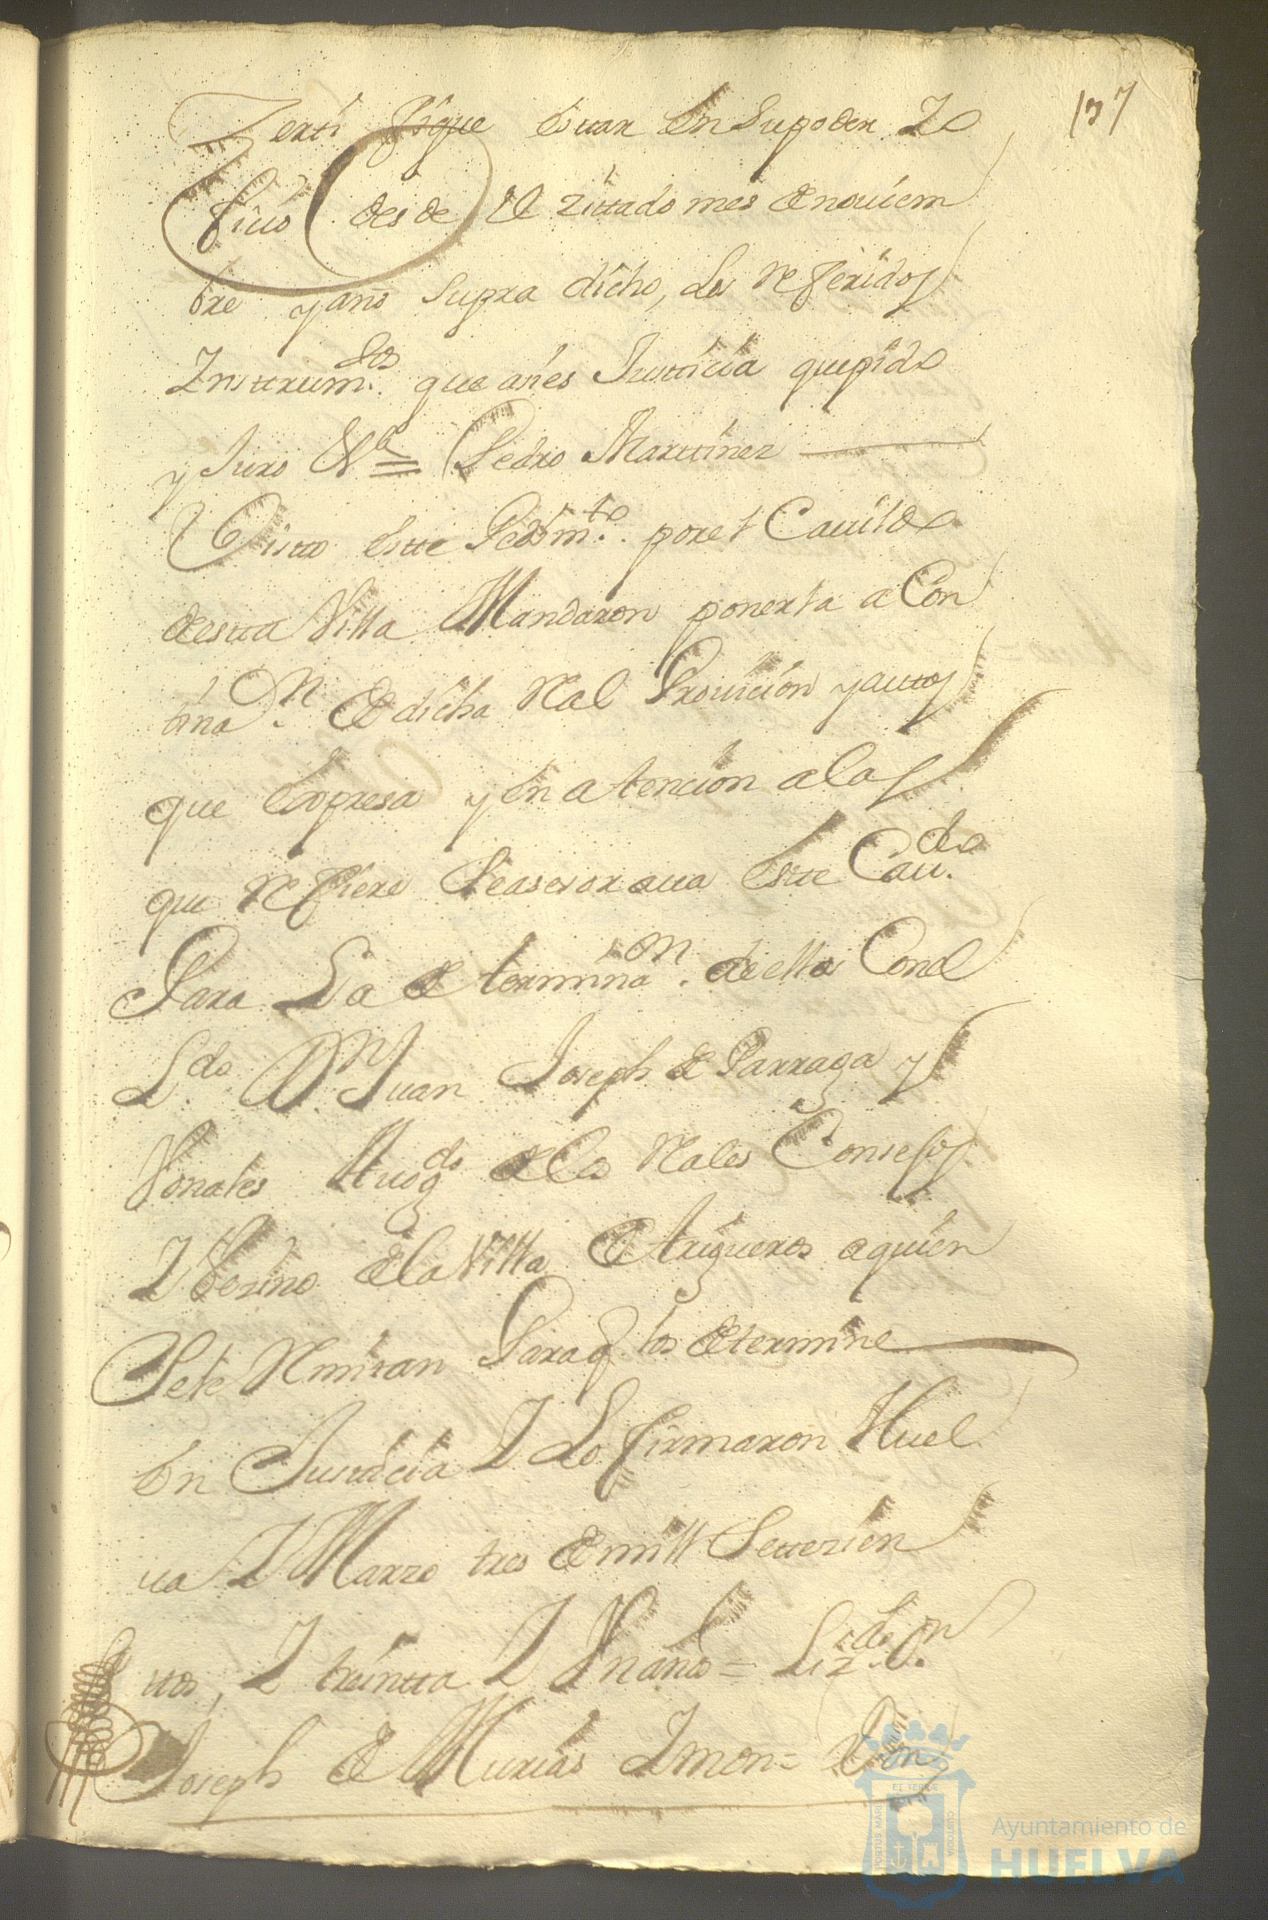 137
Zerti fique estar En Supoder Zo
ficio desde el zittado mes de nouiem
bre y ano Supra dicho, los Referidos
Ynsttrum.tos que ôies Justticia que pido
y Juro V.a = Pedro Marttinez
Visto este Pedim.to por el Cauildo
desta Villa Mandaron ponerla a Con
tina.on de dicha Real Prouicion y autos
que Expresa y En atencion a los
que Refiere Se asesoraua Este Cau.do
Para La determina.on de ellos Con el
L.do D.n Juan Joseph de Parraga y
Abog.do de los Reales Consejos
Y Vezino de la Villa de trigueros a quien
Se le Remitan Para q. los determine
En Justicia Y Lo firmaron Huel
ua Y Marzo tres de mill Settezien
ttos, Y treintta Y Vn años = Liz.do D.n
Joseph de Murias Ymon = Don
ET SEDE
PORTUS MARIS
Ayuntamiento de
HUELVA